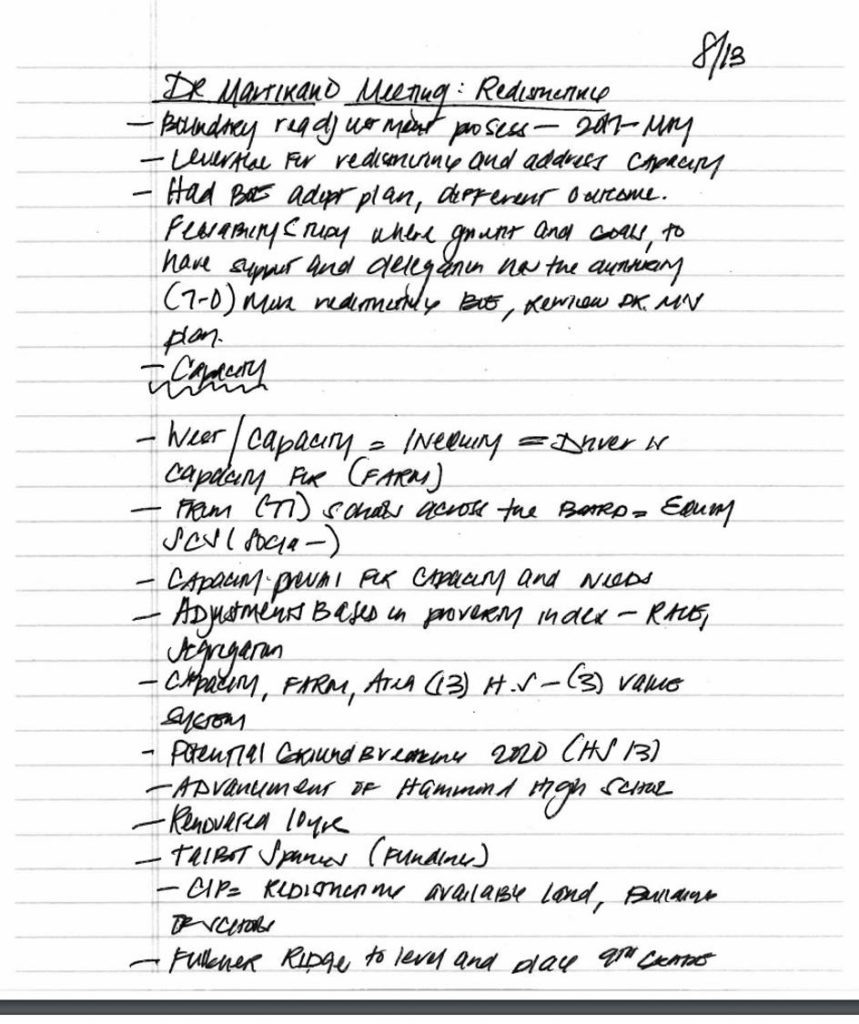 8/13
DR Martirano Meeting: Redistricting
- Boundary readjustment process - 2017- May
- Leverage For redistricting and address capacity
- Had BOE adopt plan, different outcome.
Feasability Study where growth and goals, to
have support and delegation has the authority
(7-0) redistricting BOE, review DR. MV
plan.
- Capacity
- West / capacity = INequity = Driver is
capacity For (FARM)
- Farm (T1) schools across the Board = Equity
SCS (Socia -)
- Capacity For Capacity and Needs
- Adjustments Based in poverty index - RACE,
segregation
- Capacity, FARM, Area (13) H.S - (3) value
system
- Potential Ground Breaking 2020 (HS 13)
- Advancement OF Hammond High School
- Renovated 10yr
- TALBOT Springs (Funding)
- CIP= Redistricting available land, Building
OF schools
- Fulkner Ridge to level and place 9th Grade